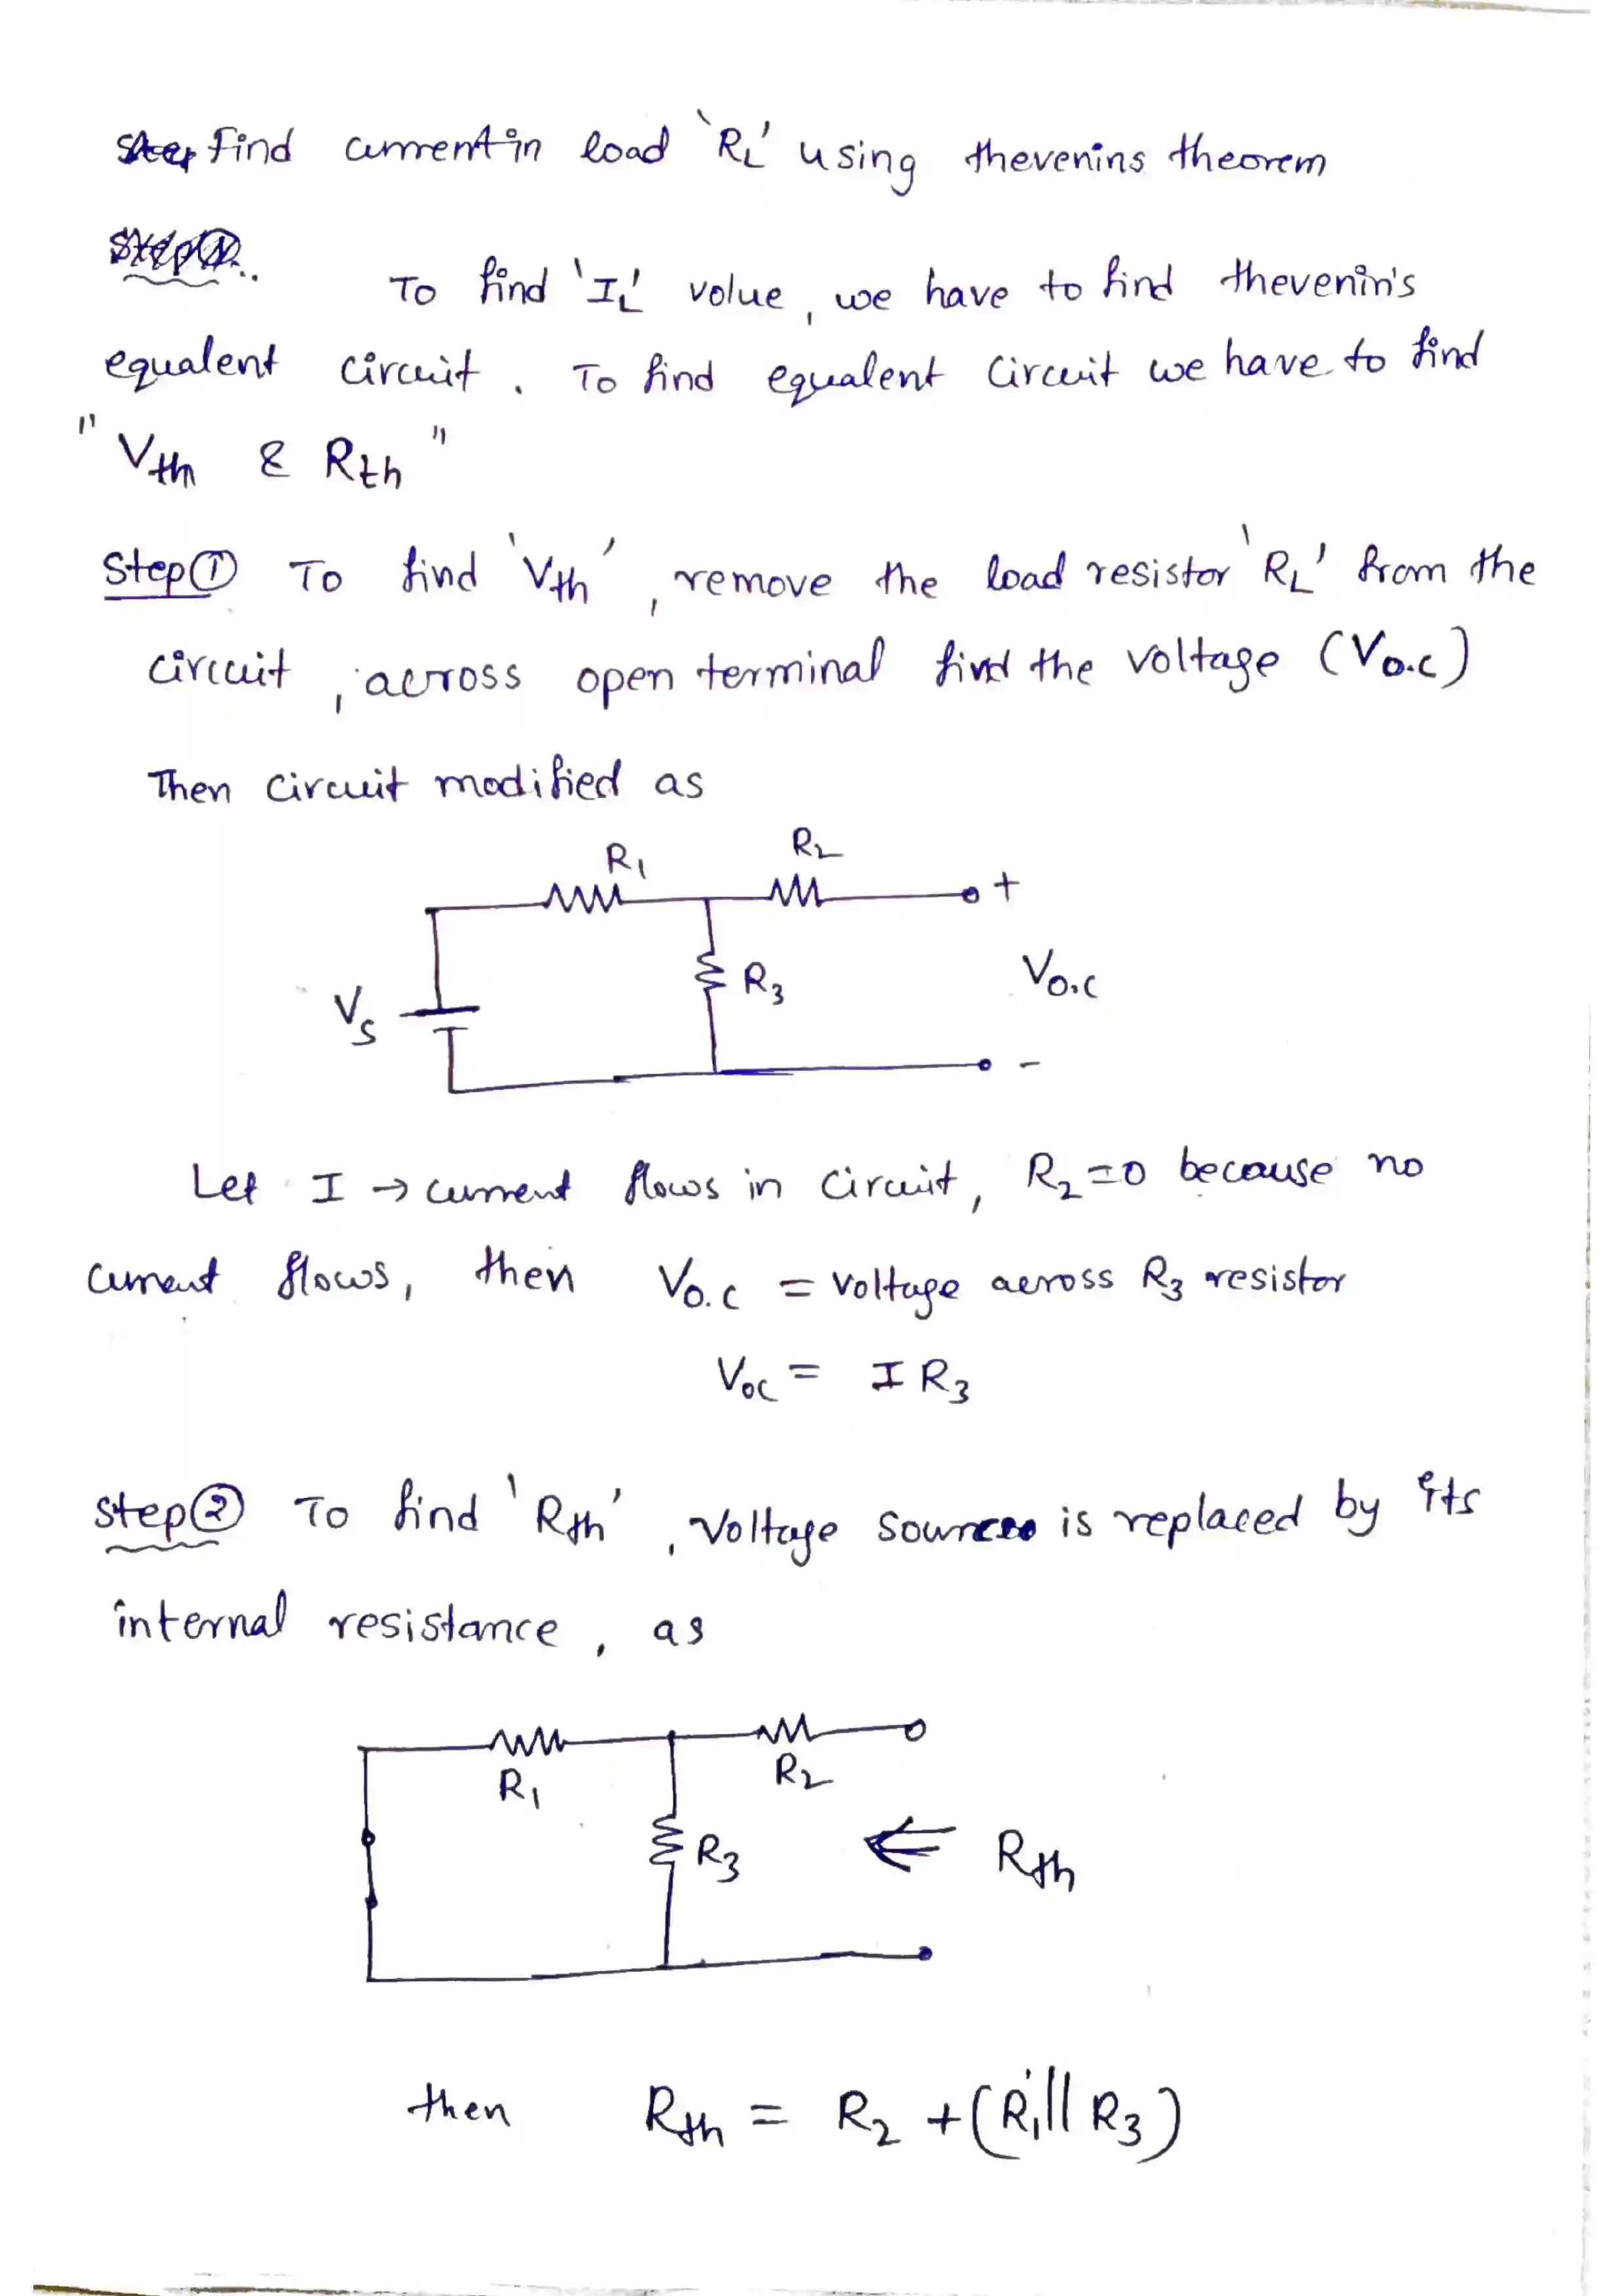 Find current in load 'RL' using thevenins theorem
To find 'IL' value, we have to find thevenin's
equalent circuit. To find equalent circuit we have to find
"Vth & Rth"
Step① To find 'Vth', remove the load resistor 'RL' from the
circuit, across open terminal find the voltage (Vo.c)
Then circuit modified as
R1
R2
+
R3
Vo.c
Vs
-
Let I → current flows in circuit, R2=0 because no
current flows, then Vo.c = voltage across R3 resistor
Voc = I R3
step② To find 'Rth', voltage source is replaced by its
internal resistance, as
R1
R2
R3
⇐ Rth
then Rth = R2 + (R1 || R3)